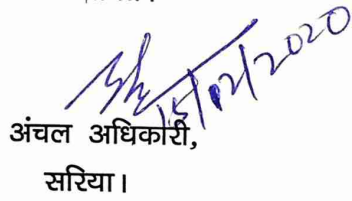 15/02/2020
अंचल अधिकारी,
सरिया।